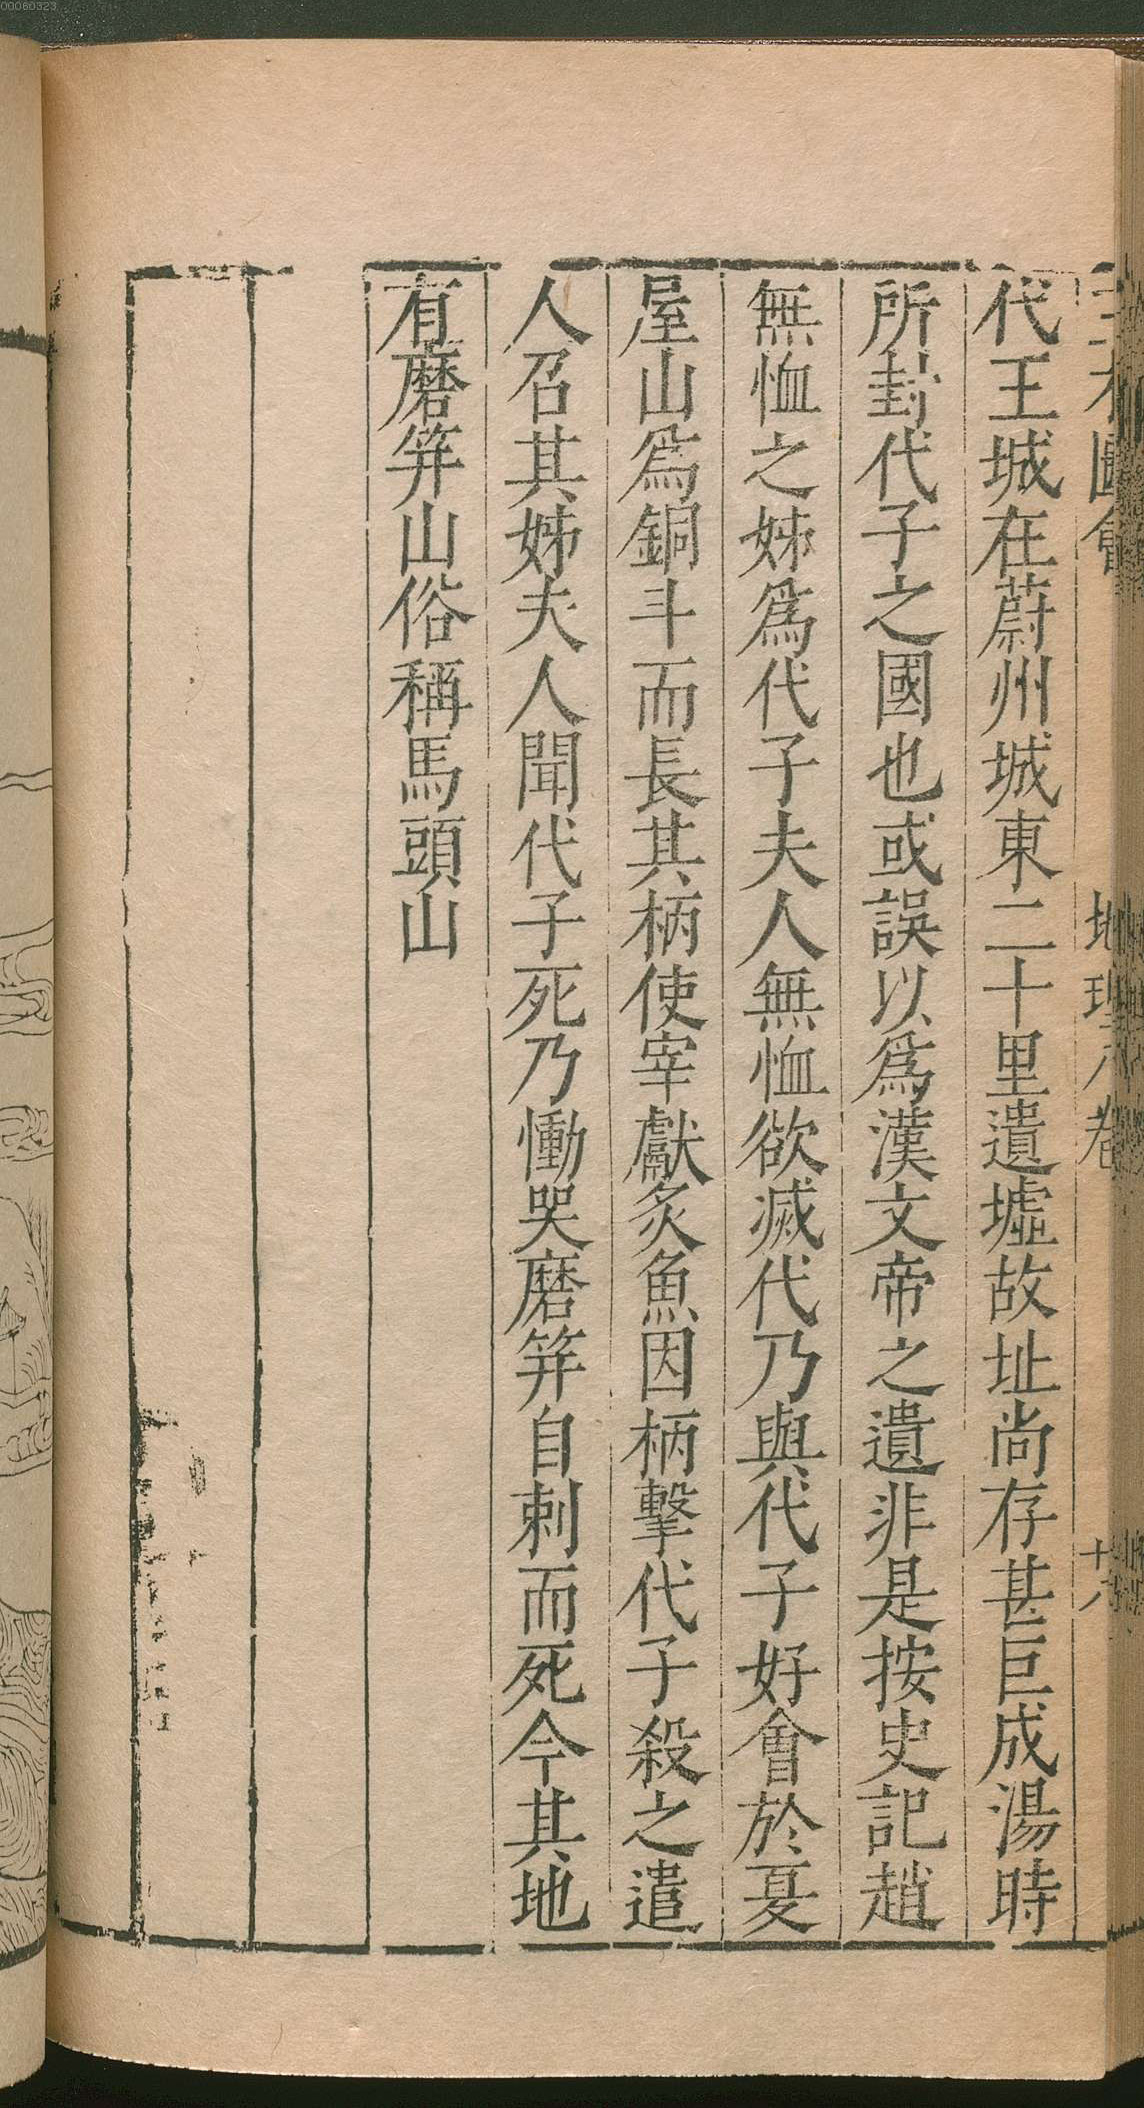 00060323
代王城在蔚州城東二十里遺墟故址尚存甚巨成湯時
所封代子之國也或誤以爲漢文帝之遺非是按史記趙
無恤之姊爲代子夫人無恤欲滅代乃與代子好會於夏
屋山爲銅斗而長其柄使宰獻炙魚因柄擊代子殺之遣
人召其姊夫人聞代子死乃慟哭磨筓自刺而死今其地
有磨筓山俗稱馬頭山